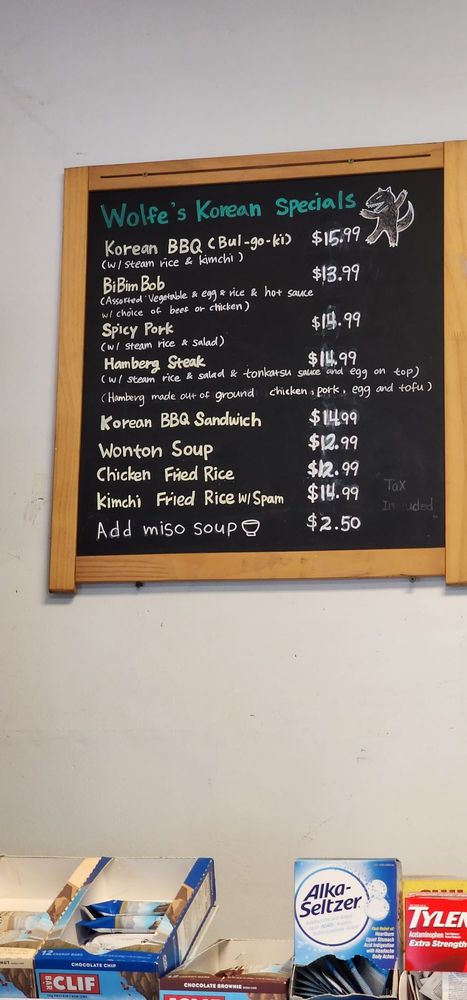 Wolfe's Korean Specials
Korean BBQ (Bul-go-ki) $15.99
(w/ steam rice & kimchi)
BiBim Bob $13.99
(Assorted Vegetable & egg & rice & hot sauce
w/ choice of beef or chicken)
Spicy Pork $14.99
(w/ steam rice & salad)
Hamberg Steak $14.99
(w/ steam rice & salad & tonkatsu sauce and egg on top)
(Hamberg made out of ground chicken, pork, egg and tofu)
Korean BBQ Sandwich $14.99
Wonton Soup $12.99
Chicken Fried Rice $12.99
Kimchi Fried Rice w/ Spam $14.99
Tax
Included
Add miso soup $2.50
12 ENERGY BARS
CHOCOLATE CHIP
CLIF
BAR
CHOCOLATE BROWNIE
CLIF
Alka-
Seltzer
Fast Relief of:
Heartburn
Upset Stomach
Acid Indigestion
with Headache
Body Aches
TYLEN
Acetaminophen
Extra Strength